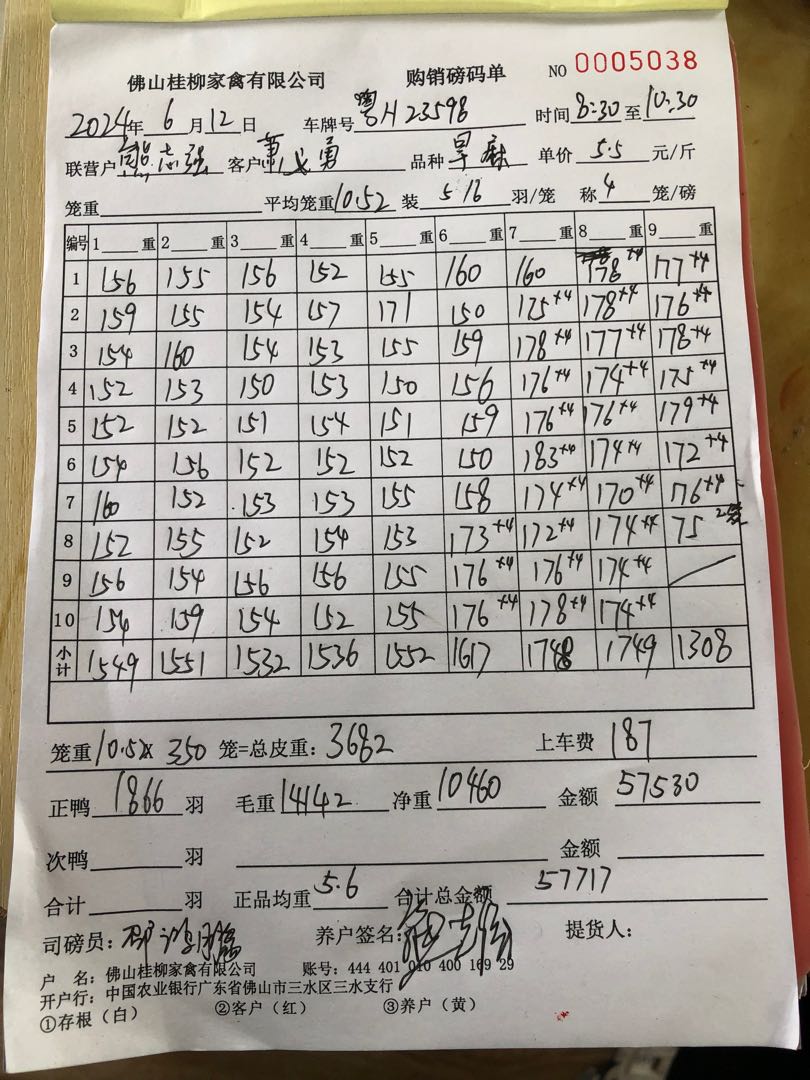 佛山桂柳家禽有限公司 购销磅码单 NO 0005038
2024年 6 月 12 日 车牌号 粤H23598 时间 8:30 至 10:30
联营户 熊志强 客户 萧戊勇 品种 旱麻 单价 5.5 元/斤
笼重 平均笼重 10.52 装 5 16 羽/笼 称 4 笼/磅
编号 1 重 2 重 3 重 4 重 5 重 6 重 7 重 8 重 9 重
1 156 155 156 152 155 160 160 178+4 177+4
2 159 155 154 157 171 150 175+4 178+4 176+4
3 154 160 154 153 155 159 178+4 177+4 178+4
4 152 153 150 153 150 156 176+4 174+4 175+4
5 152 152 151 154 151 159 176+4 176+4 179+4
6 154 156 152 152 152 150 183+4 174+4 172+4
7 160 152 153 153 155 158 174+4 170+4 176+4
8 152 155 152 154 153 173+4 172+4 174+4 75 2笼
9 156 154 156 156 155 176+4 176+4 174+4
10 154 159 154 152 155 176+4 178+4 174+4
小计 1549 1551 1532 1536 1552 1617 1748 1749 1308
笼重 10.52x 350 笼=总皮重: 3682 上车费 187
正鸭 1866 羽 毛重 14142 净重 10460 金额 57530
次鸭 羽 金额
合计 羽 正品均重 5.6 合计总金额 57717
司磅员: 养户签名: 提货人:
户 名: 佛山桂柳家禽有限公司 账号: 444 401 010 400 169 29
开户行: 中国农业银行广东省佛山市三水区三水支行
①存根（白） ②客户（红） ③养户（黄）